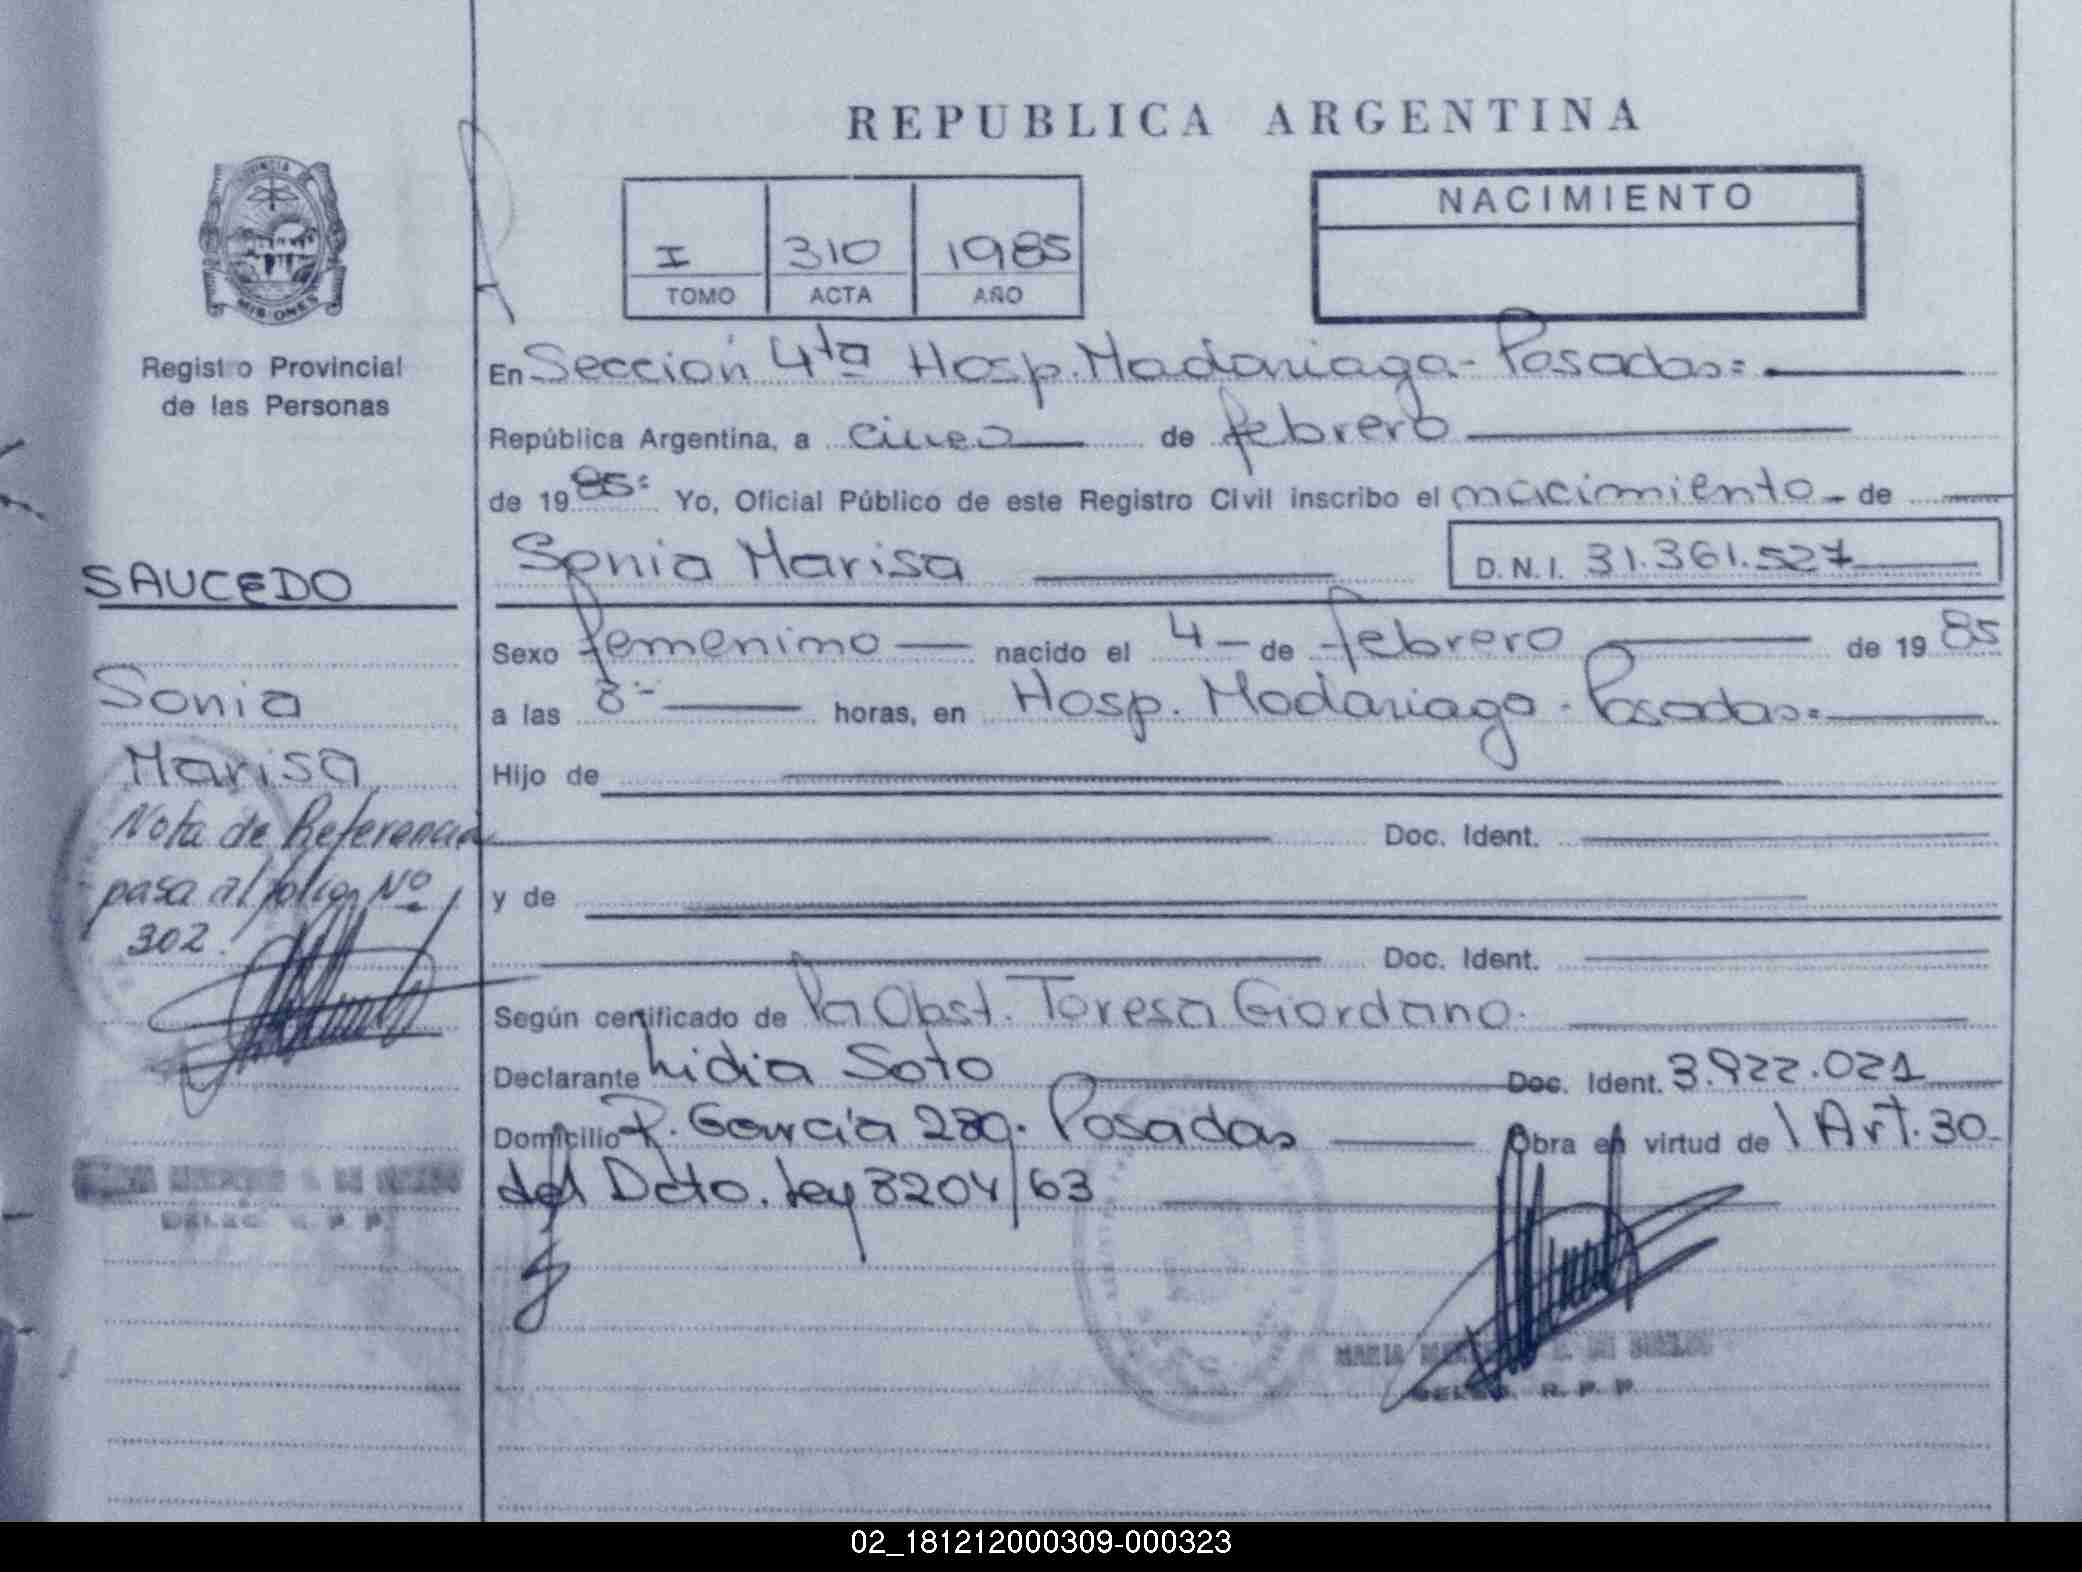 REPUBLICA ARGENTINA
PROVINCIA
MISIONES
Registro Provincial
de las Personas
I 310 1985
TOMO ACTA AÑO
NACIMIENTO
En Sección 4ta Hosp. Madariaga - Posadas=
República Argentina, a cinco de febrero
de 1985= Yo, Oficial Público de este Registro Civil inscribo el nacimiento - de
Sonia Marisa D.N.I. 31.361.527
SAUCEDO
Sonia
Marisa
Nota de Referencia
pasa al folio Nº
302.
Sexo femenino nacido el 4 - de febrero de 1985
a las 8 horas, en Hosp. Madariaga - Posadas=
Hijo de
Doc. Ident.
y de
Doc. Ident.
Según certificado de la Obst. Teresa Giordano.
Declarante Lidia Soto Doc. Ident. 3.922.021
Domicilio P. García 289. Posadas Obra en virtud de l Art. 30
del Dcto. Ley 8204/63
MARIA
R. P. P.
R. P. P.
02_181212000309-000323